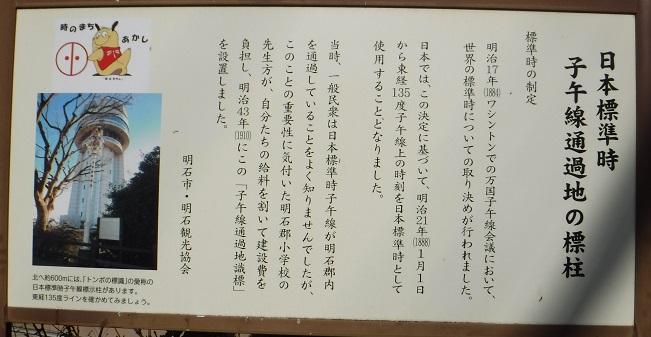 日本標準時
子午線通過地の標柱
標準時の制定
明治17年(1884)ワシントンでの万国子午線会議において、
世界の標準時についての取り決めが行われました。
日本では、この決定に基づいて、明治21年(1888)1月1日
から東経135度子午線上の時刻を日本標準時として
使用することとなりました。
当時、一般民衆は日本標準時子午線が明石郡内
を通過していることをよく知りませんでしたが、
このことの重要性に気付いた明石郡小学校の
先生方が、自分たちの給料を割いて建設費を
負担し、明治43年(1910)にこの「子午線通過地識標」
を設置しました。
明石市・明石観光協会
時のまち
あかし
北へ約600mには、「トンボの標識」の愛称の
日本標準時子午線標示柱があります。
東経135度ラインを確かめてみましょう。